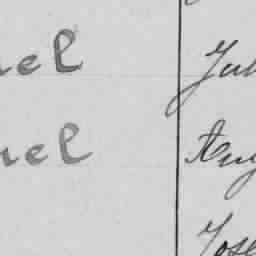 nel Jul
nel Aug
Jose